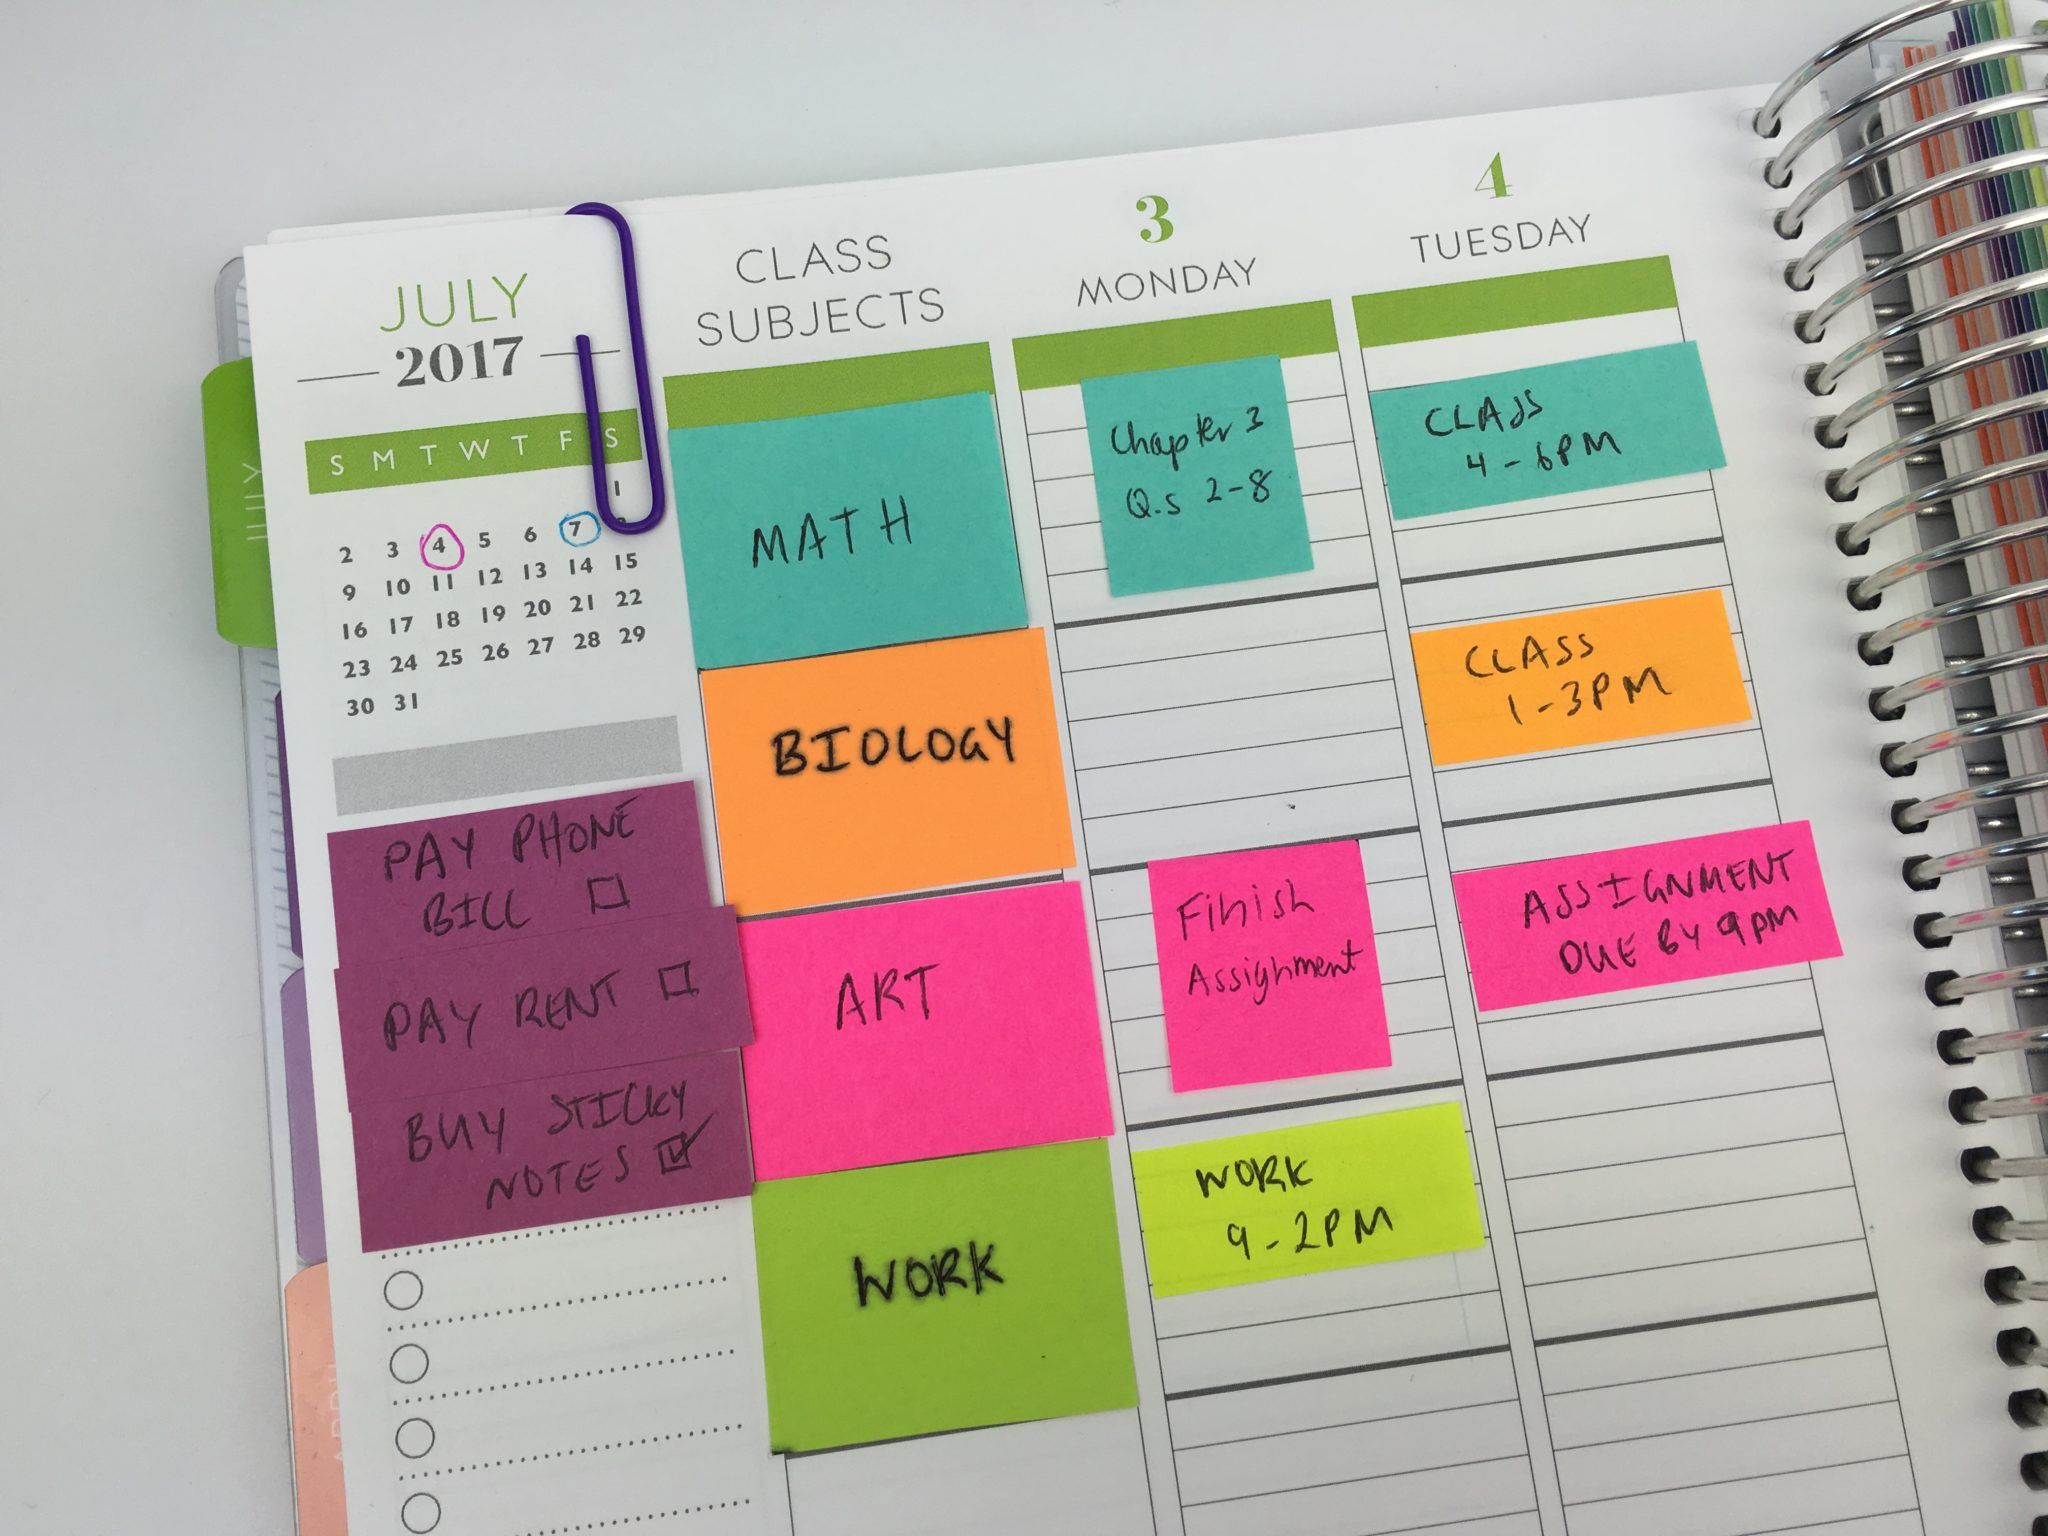 JULY
2017
S M T W T F S
1
2 3 4 5 6 7
9 10 11 12 13 14 15
16 17 18 19 20 21 22
23 24 25 26 27 28 29
30 31
PAY PHONE
BILL
PAY RENT
BUY STICKY
NOTES
CLASS
SUBJECTS
MATH
BIOLOGY
ART
WORK
3
MONDAY
Chapter 3
Q.s 2-8
Finish
Assignment
WORK
9-2PM
4
TUESDAY
CLASS
4-6PM
CLASS
1-3PM
ASSIGNMENT
DUE BY 9PM
JULY